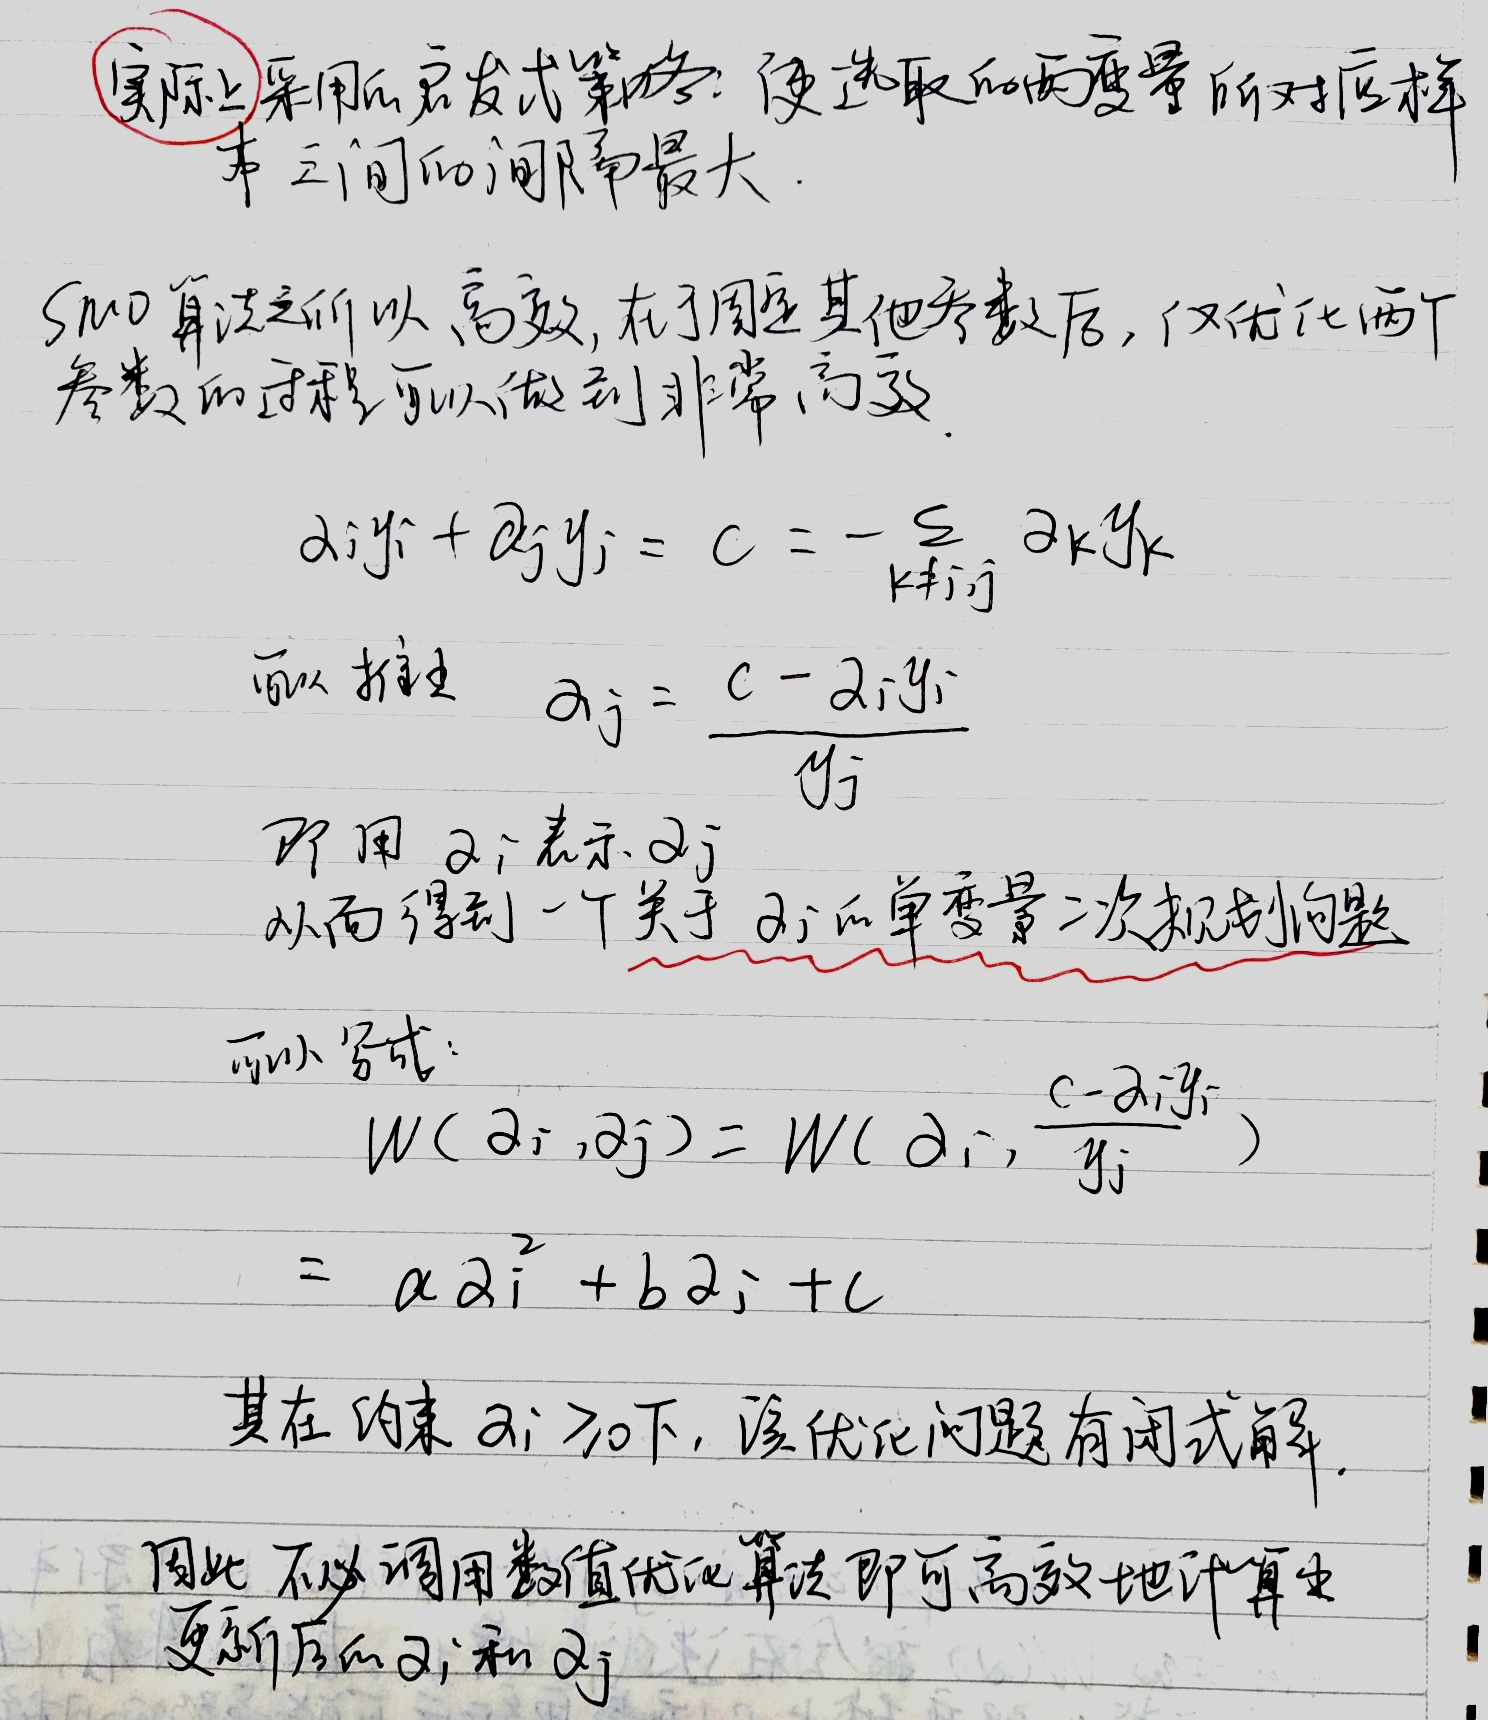 实际上采用的启发式策略：使选取的两变量所对应样
本之间的间隔最大.
SMO算法之所以高效,在于固定其他参数后,仅优化两个
参数的过程可以做到非常高效.
αiyi + αjyj = C = -∑k≠i,j αkyk
可以推出 αj = (C - αiyi) / yj
即用 αi 表示 αj
从而得到一个关于 αi 的单变量二次规划问题
可以写成:
W(αi,αj) = W(αi, (C-αiyi)/yj)
= aαi² + bαi + c
其在约束 αi ≥0下,该优化问题有闭式解.
因此不必调用数值优化算法即可高效地计算出
更新后的αi和αj